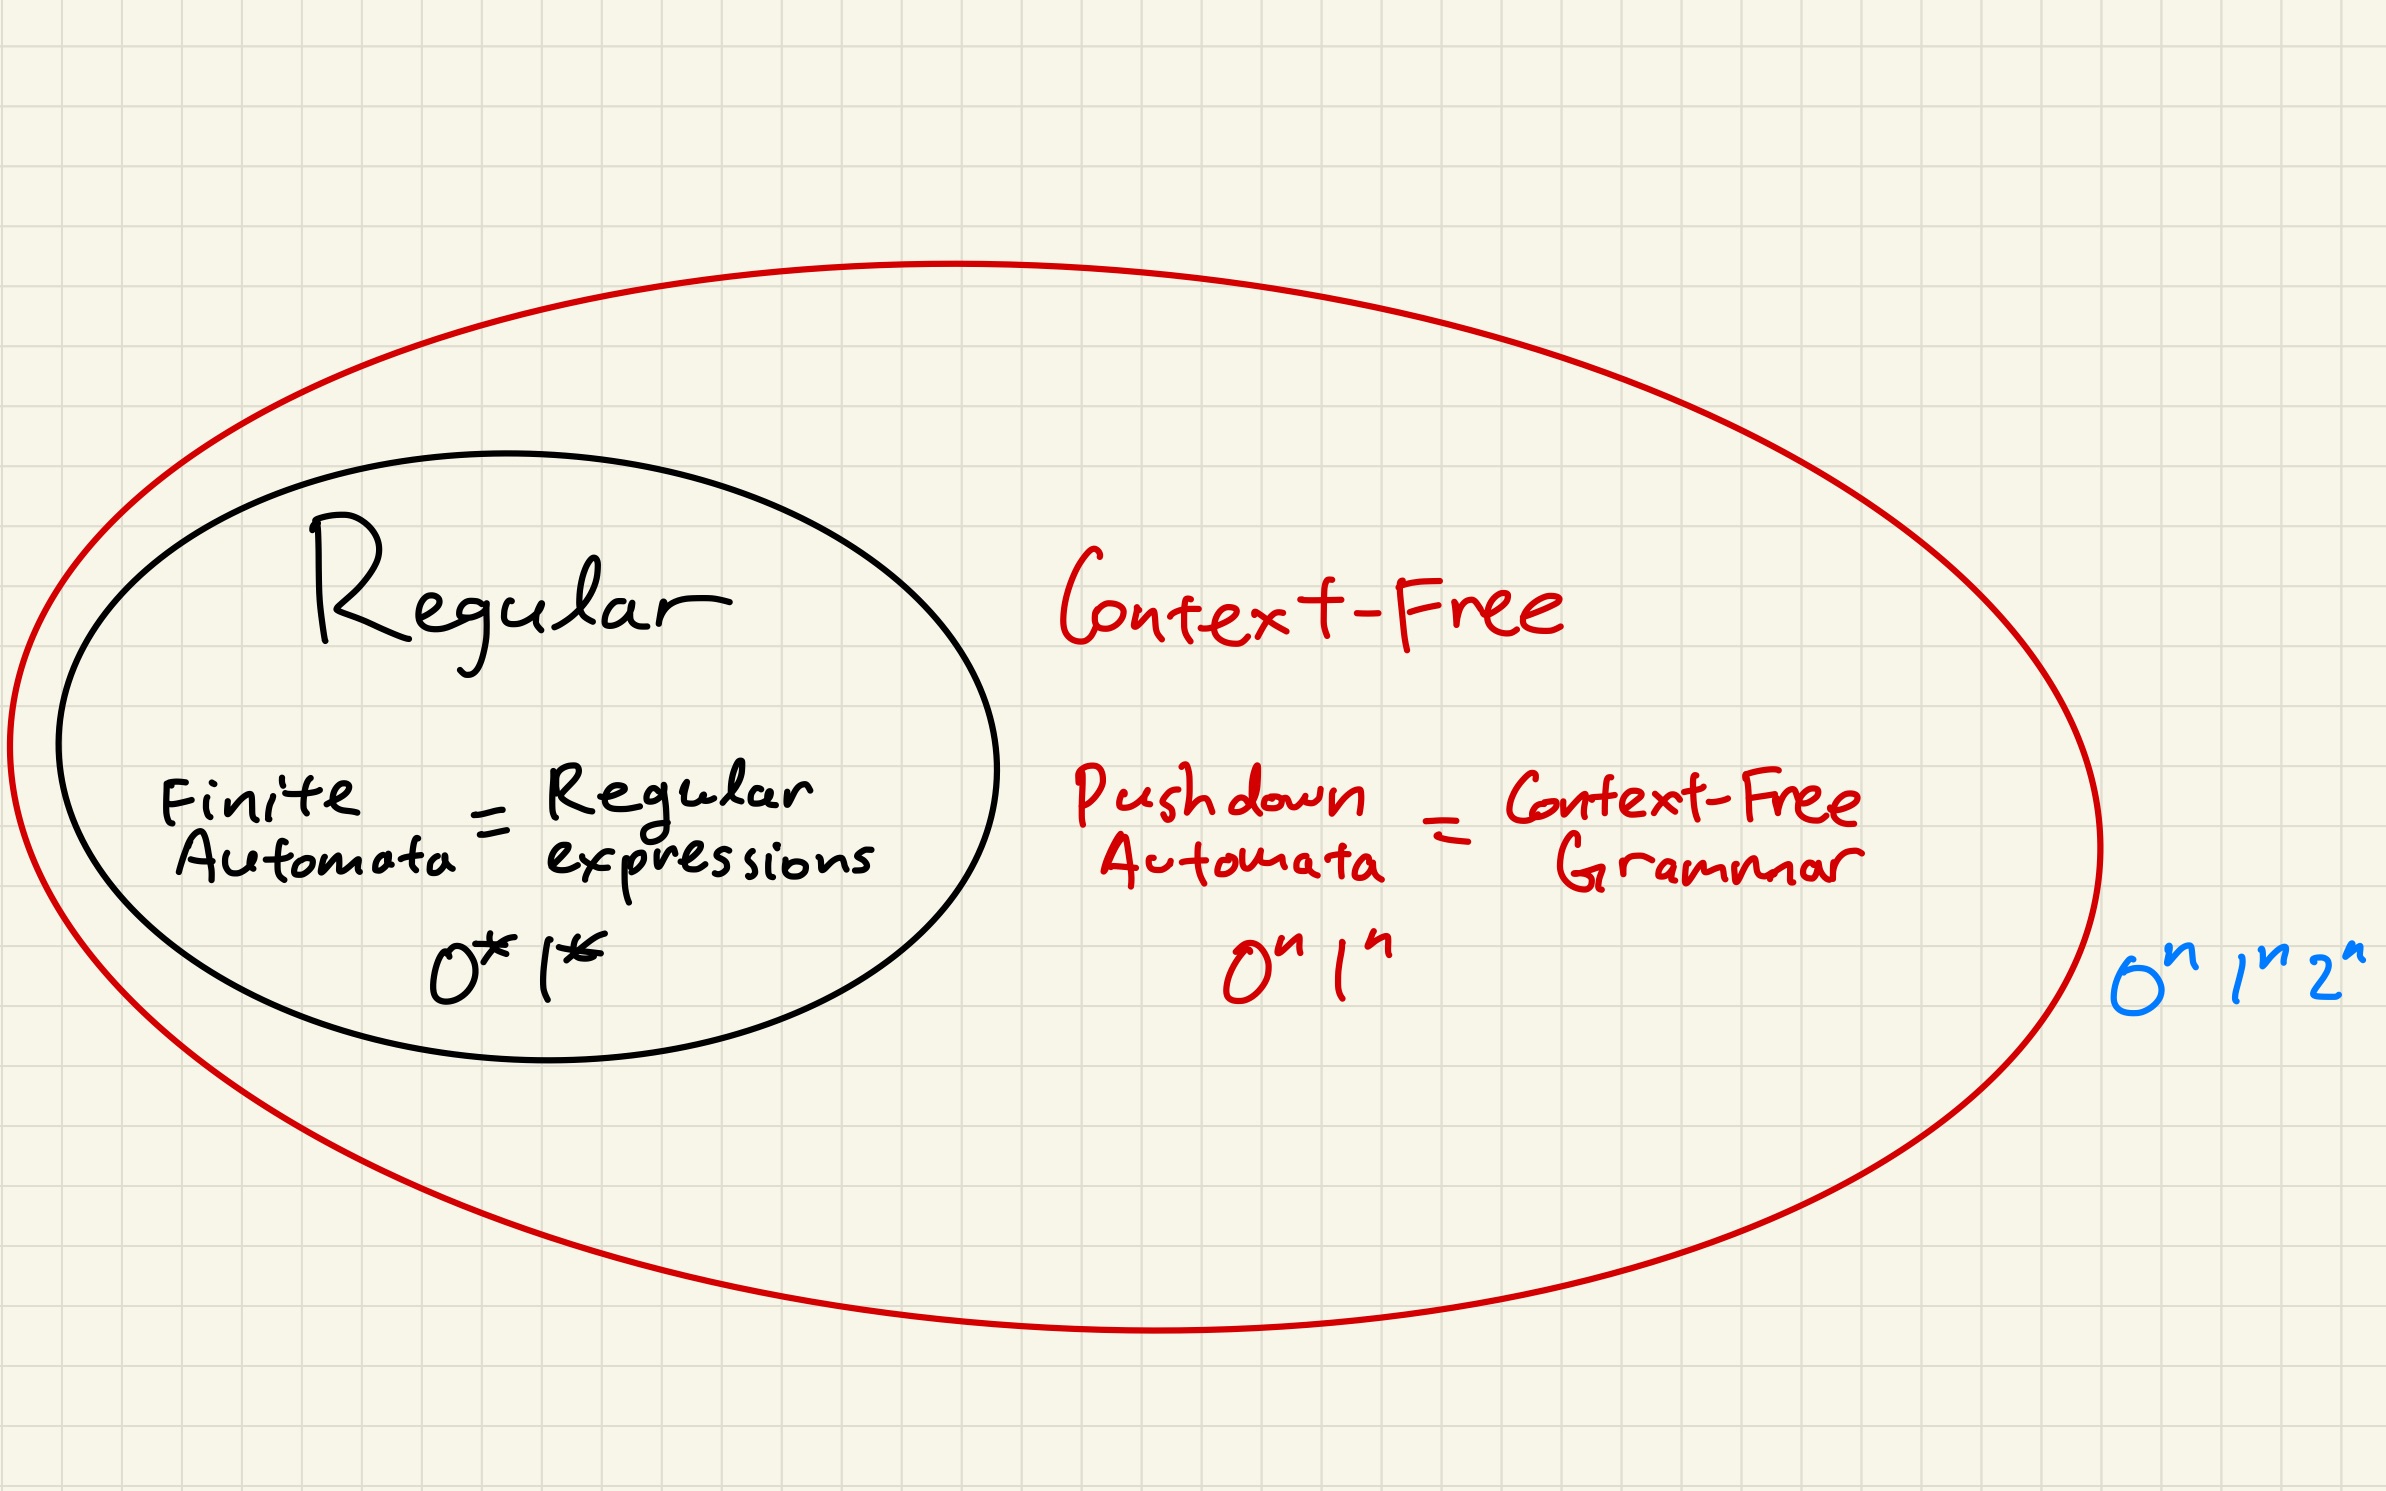 Regular
Finite Automata = Regular expressions
0* 1*
Context-Free
Pushdown Automata = Context-Free Grammar
0ⁿ 1ⁿ
0ⁿ 1ⁿ 2ⁿ